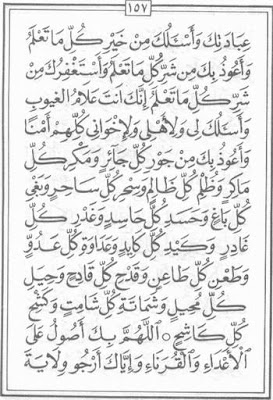 ١٥٧
عِبَادَتِكَ وَأَسْئَلُكَ مِنْ خَيْرِ كُلِّ مَا تَعْلَمُ
وَأَعُوذُ بِكَ مِنْ شَرِّ كُلِّ مَا تَعْلَمُ وَأَسْتَغْفِرُكَ مِنْ
شَرِّ كُلِّ مَا تَعْلَمُ إِنَّكَ أَنْتَ عَلَّامُ الْغُيُوبِ
وَأَسْئَلُكَ لِي وَلِأَهْلِي وَلِإِخْوَانِي كُلِّهِمْ أَمْنًا
وَأَعُوذُ بِكَ مِنْ جَوْرِ كُلِّ جَائِرٍ وَمَكْرِ كُلِّ
مَاكِرٍ وَظُلْمِ كُلِّ ظَالِمٍ وَسِحْرِ كُلِّ سَاحِرٍ وَبَغْيِ
كُلِّ بَاغٍ وَحَسَدِ كُلِّ حَاسِدٍ وَغَدْرِ كُلِّ
غَادِرٍ وَكَيْدِ كُلِّ كَايِدٍ وَعَدَاوَةِ كُلِّ عَدُوٍّ
وَطَعْنِ كُلِّ طَاعِنٍ وَقَدْحِ كُلِّ قَادِحٍ وَحِيَلِ
كُلِّ مُحِيلٍ وَشَمَاتَةِ كُلِّ شَامِتٍ وَكَشْحِ
كُلِّ كَاشِحٍ ۝ اَللّٰهُمَّ بِكَ أَصُولُ عَلَى
الْأَعْدَاءِ وَالْقُرَنَاءِ وَإِيَّاكَ أَرْجُو وِلَايَةَ